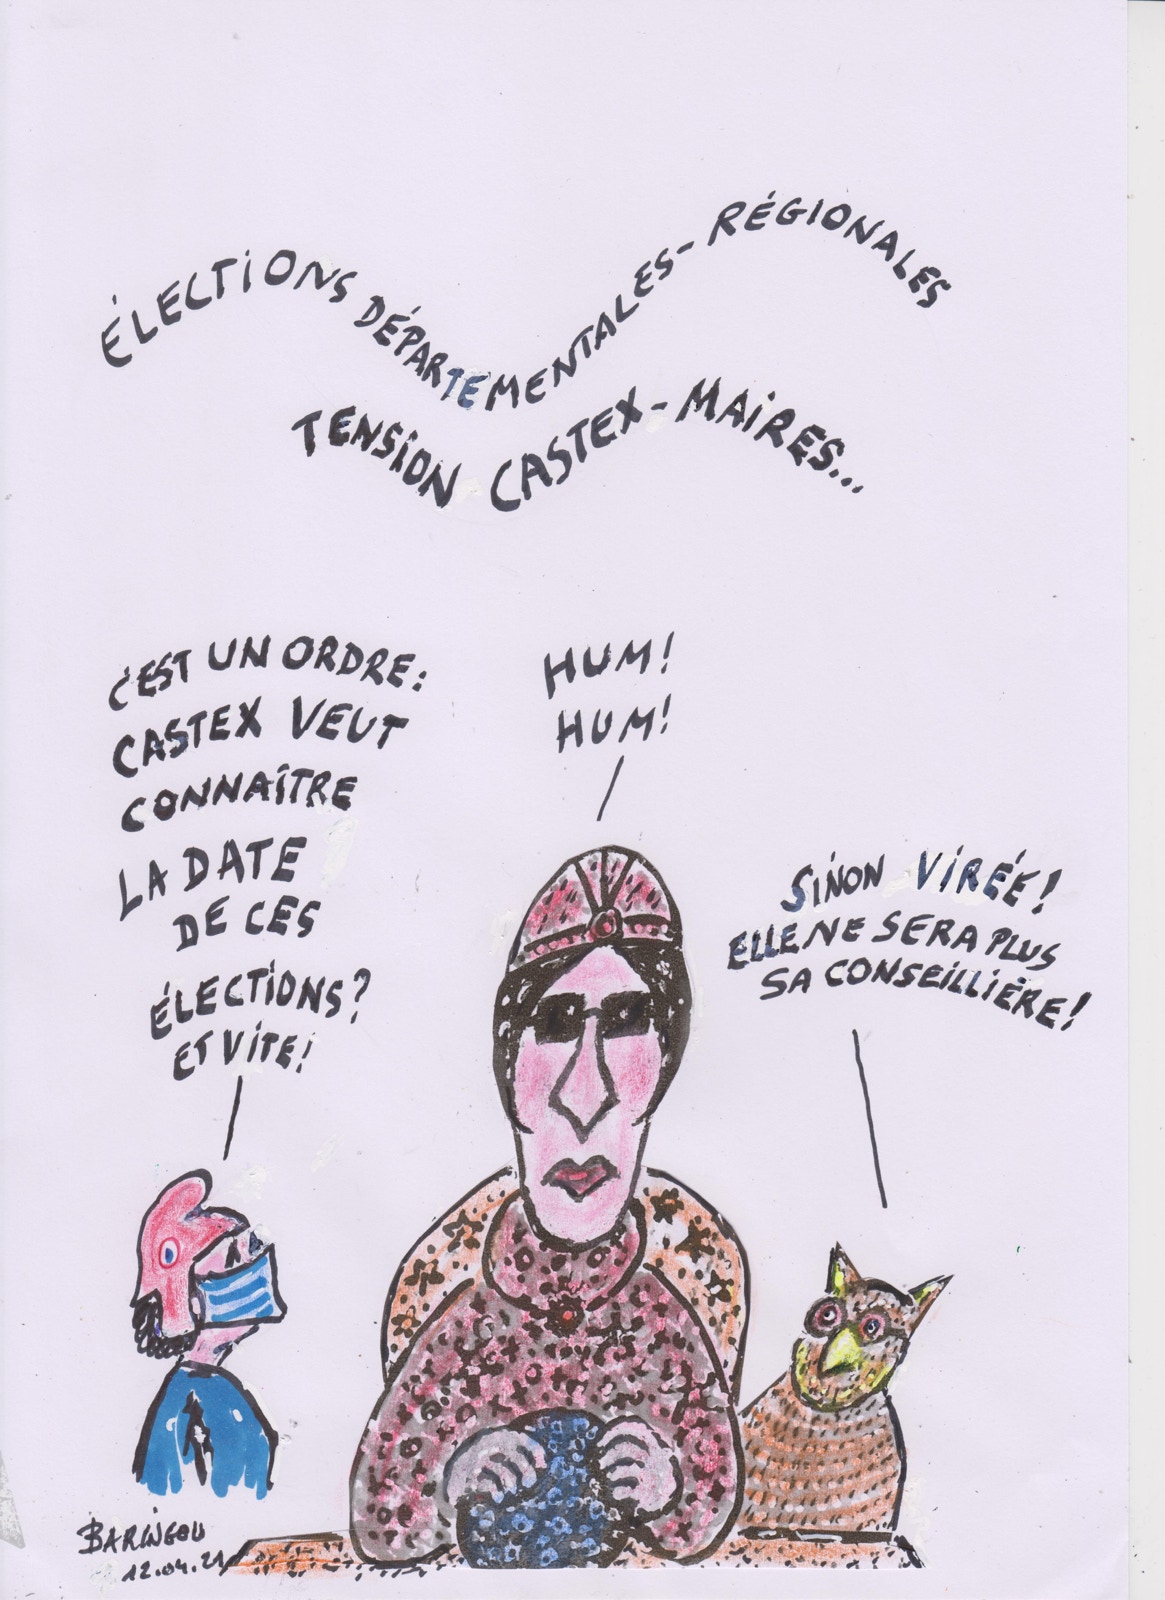 ÉLECTIONS DÉPARTEMENTALES-RÉGIONALES
TENSION CASTEX-MAIRES...
C'EST UN ORDRE:
CASTEX VEUT
CONNAÎTRE
LA DATE
DE CES
ÉLECTIONS?
ET VITE!
HUM!
HUM!
SINON VIRÉE!
ELLE NE SERA PLUS
SA CONSEILLIÈRE!
BARINGOU
12.04.21